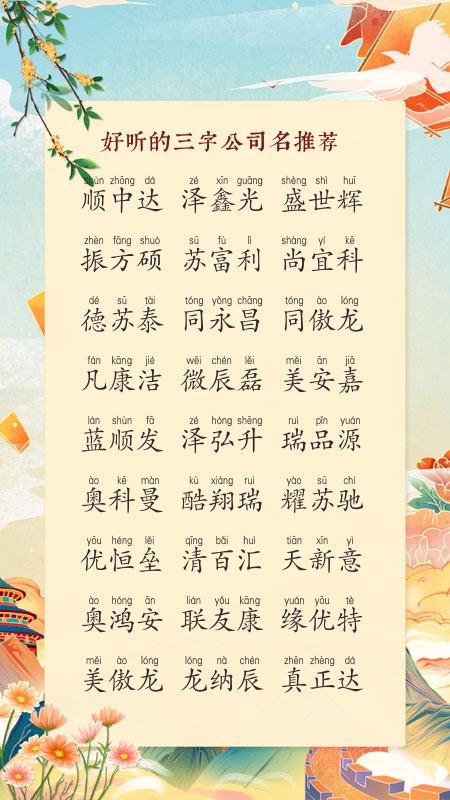 好听的三字公司名推荐
shùn zhōng dá zé xīn guāng shèng shì huī
顺中达 泽鑫光 盛世辉
zhèn fāng shuò sū fù lì shàng yí kē
振方硕 苏富利 尚宜科
dé sū tài tóng yǒng chāng tóng ào lóng
德苏泰 同永昌 同傲龙
fán kāng jié wēi chén lěi měi ān jiā
凡康洁 微辰磊 美安嘉
lán shùn fā zé hóng shēng ruì pǐn yuán
蓝顺发 泽弘升 瑞品源
ào kē màn kù xiáng ruì yào sū chí
奥科曼 酷翔瑞 耀苏驰
yōu héng lěi qīng bǎi huì tiān xīn yì
优恒垒 清百汇 天新意
ào hóng ān lián yǒu kāng yuán yōu tè
奥鸿安 联友康 缘优特
měi ào lóng lóng nà chén zhēn zhèng dá
美傲龙 龙纳辰 真正达